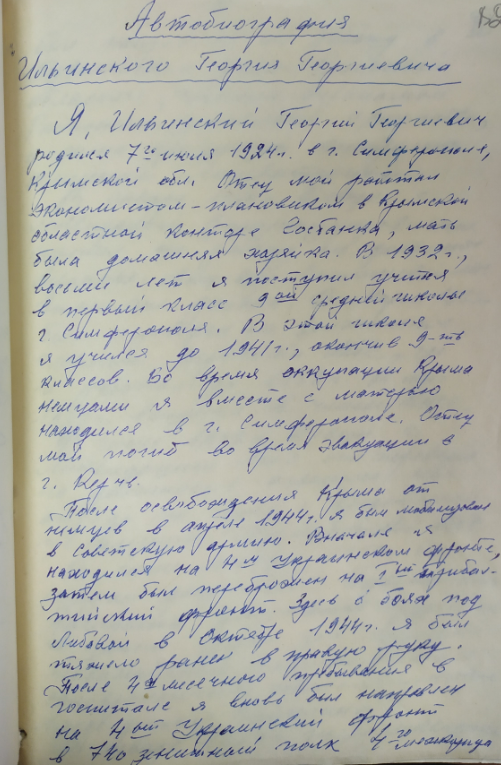 Автобиография
Ильинского Георгия Георгиевича
Я, Ильинский Георгий Георгиевич
родился 7го июля 1924г. в г. Симферополе,
Крымской обл. Отец мой работал
экономистом-плановиком в Крымской
областной конторе Госбанка, мать
была домашняя хозяйка. В 1932г.,
восьми лет я поступил учится
в первый класс 9ой средней школы
г. Симферополя. В этой школе
я учился до 1941г., окончив 9-ть
классов. Во время оккупации Крыма
немцами я вместе с матерью
находился в г. Симферополе. Отец
мой погиб во время эвакуации в
г. Керчь.
После освобождения Крыма от
немцев в апреле 1944г. я был мобилизован
в Советскую армию. Вначале я
находился на 4м Украинском фронте,
затем был переброшен на Iый Прибал-
тийский фронт. Здесь в боях под
Либавой в Октябре 1944г. я был
тяжело ранен в правую руку.
После месечного пребывания в
госпитале я вновь был направлен
на 4ый Украинский фронт
в зенитный полк 4го